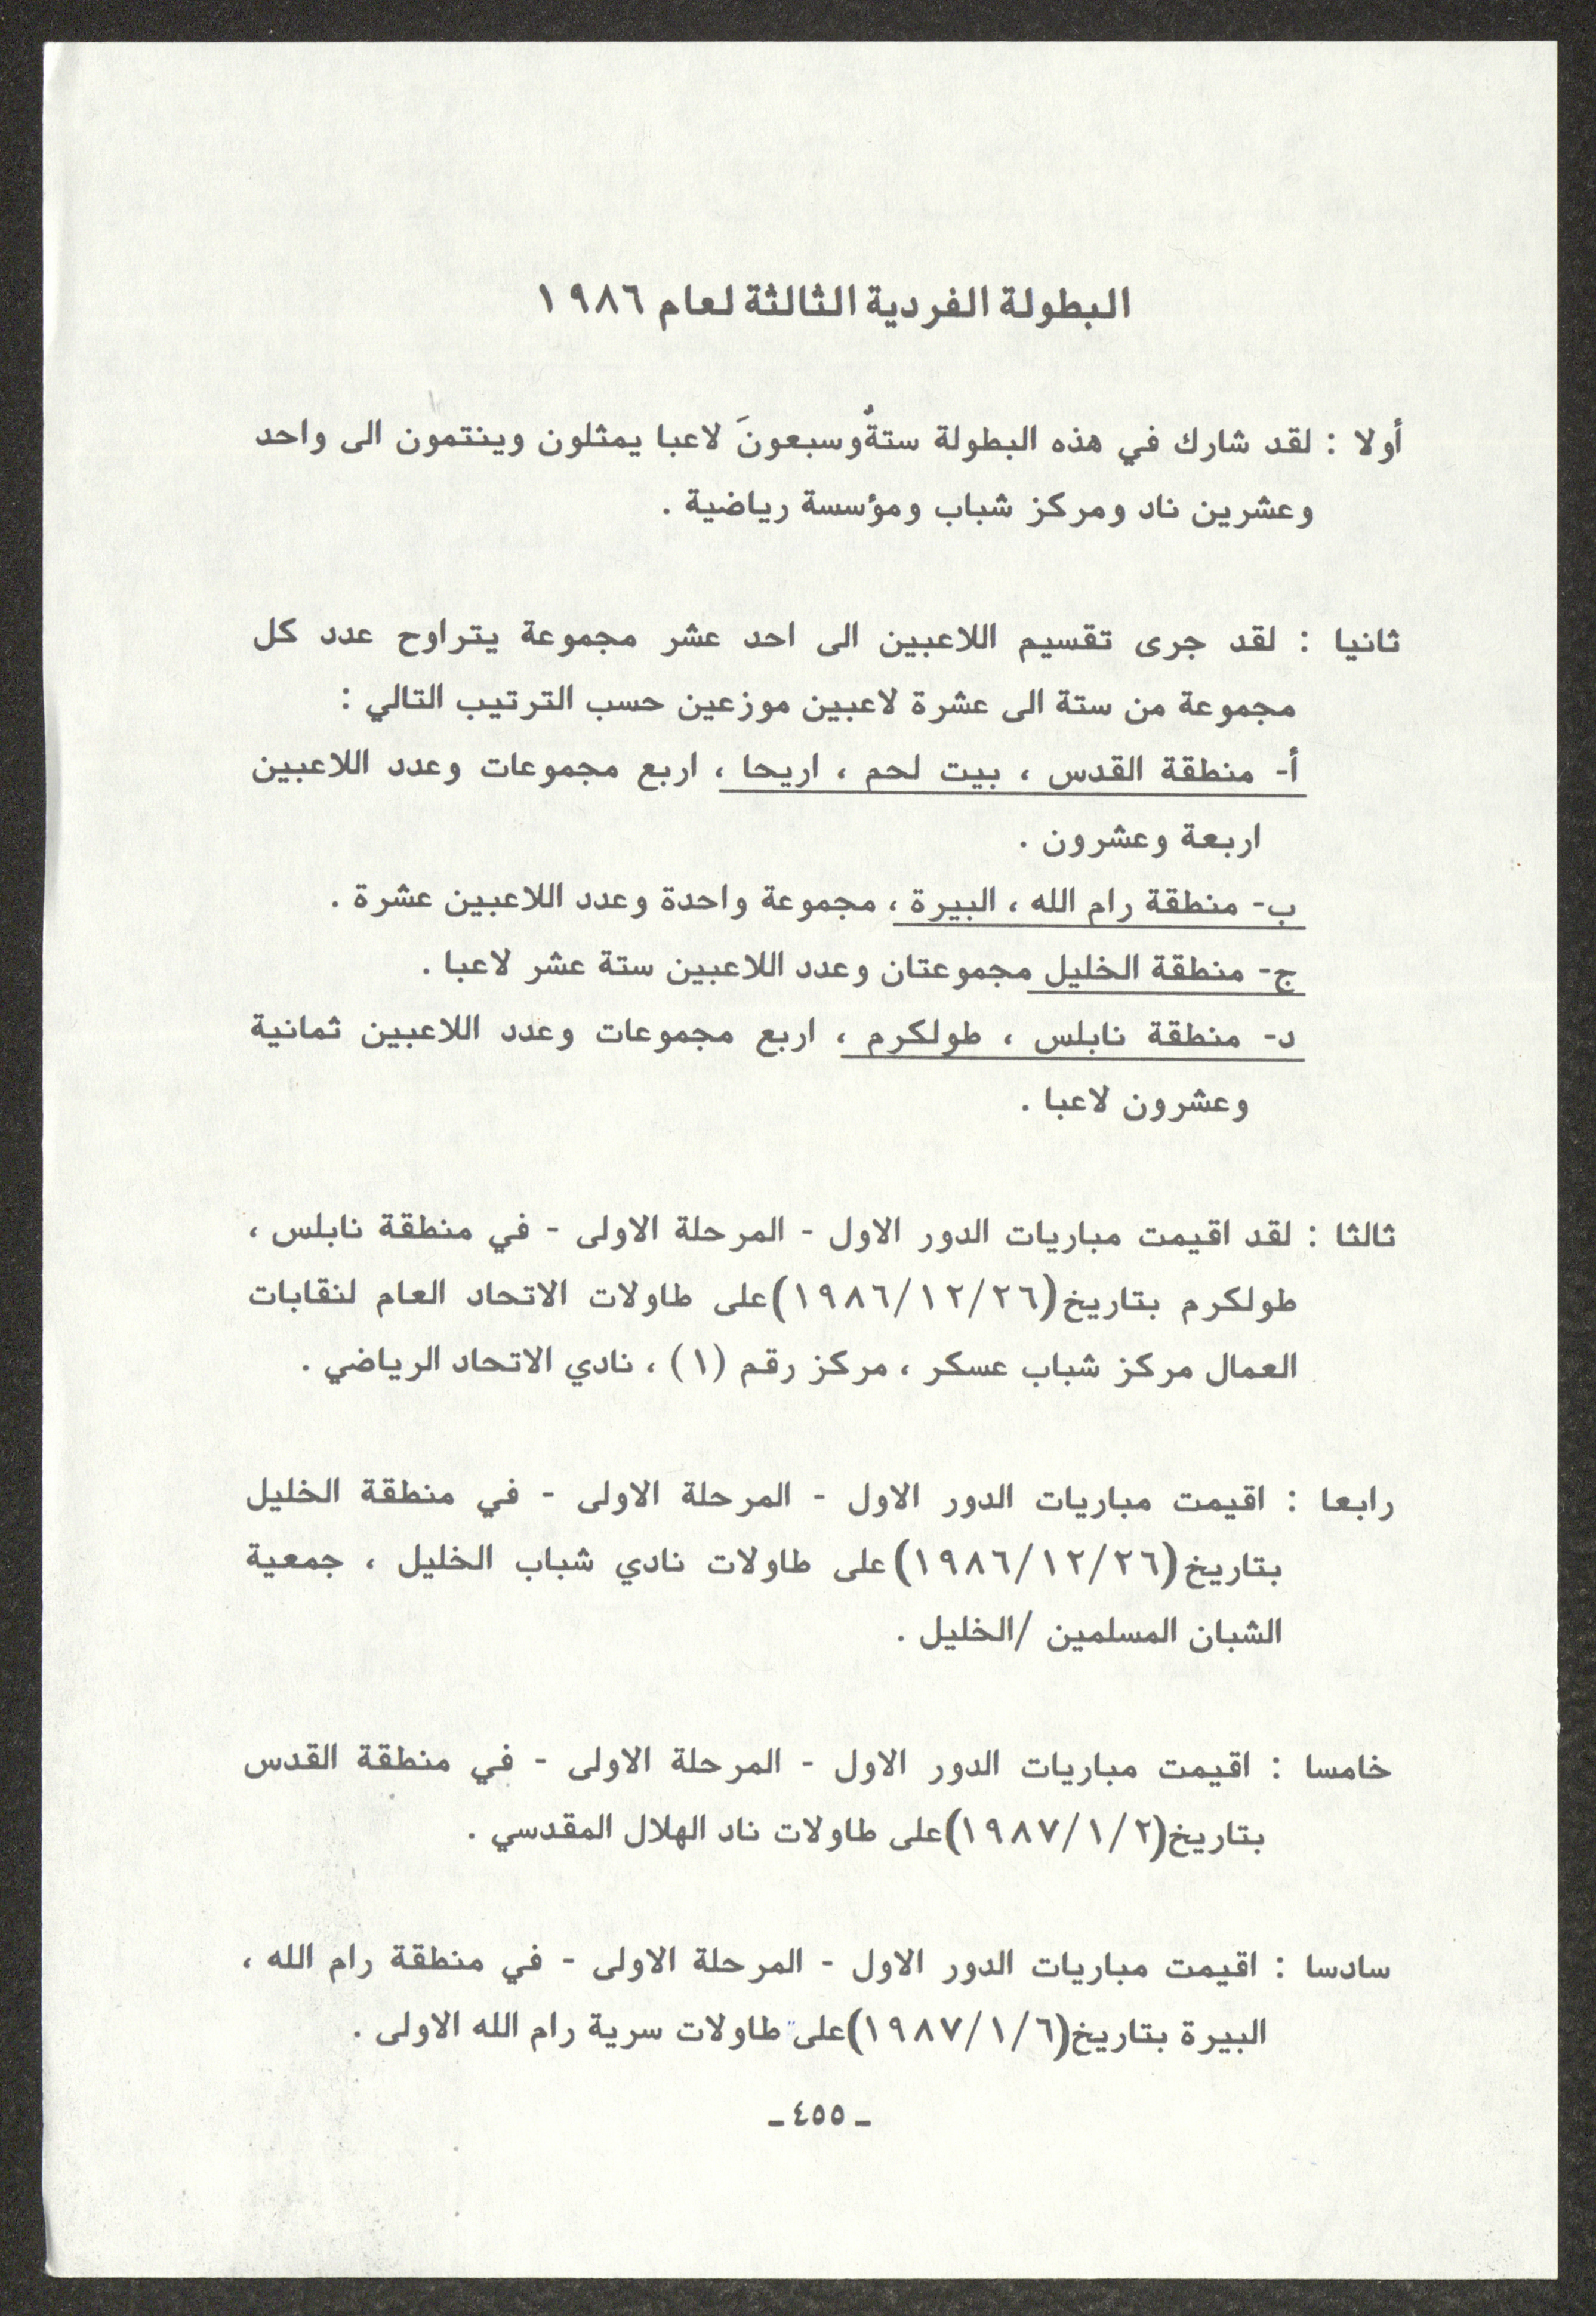 البطولة الفردية الثالثة لعام ١٩٨٦
أولا : لقد شارك في هذه البطولة ستةٌ وسبعونَ لاعبا يمثلون وينتمون الى واحد
وعشرين ناد ومركز شباب ومؤسسة رياضية .
ثانيا : لقد جرى تقسيم اللاعبين الى احد عشر مجموعة يتراوح عدد كل
مجموعة من ستة الى عشرة لاعبين موزعين حسب الترتيب التالي :
أ- منطقة القدس ، بيت لحم ، اريحا ، اربع مجموعات وعدد اللاعبين
اربعة وعشرون .
ب- منطقة رام الله ، البيرة ، مجموعة واحدة وعدد اللاعبين عشرة .
ج- منطقة الخليل مجموعتان وعدد اللاعبين ستة عشر لاعبا .
د- منطقة نابلس ، طولكرم ، اربع مجموعات وعدد اللاعبين ثمانية
وعشرون لاعبا .
ثالثا : لقد اقيمت مباريات الدور الاول - المرحلة الاولى - في منطقة نابلس ،
طولكرم بتاريخ (١٩٨٦/١٢/٢٦) على طاولات الاتحاد العام لنقابات
العمال مركز شباب عسكر ، مركز رقم (١) ، نادي الاتحاد الرياضي .
رابعا : اقيمت مباريات الدور الاول - المرحلة الاولى - في منطقة الخليل
بتاريخ (١٩٨٦/١٢/٢٦) على طاولات نادي شباب الخليل ، جمعية
الشبان المسلمين /الخليل .
خامسا : اقيمت مباريات الدور الاول - المرحلة الاولى - في منطقة القدس
بتاريخ (١٩٨٧/١/٢) على طاولات ناد الهلال المقدسي .
سادسا : اقيمت مباريات الدور الاول - المرحلة الاولى - في منطقة رام الله ،
البيرة بتاريخ (١٩٨٧/١/٦) على طاولات سرية رام الله الاولى .
- ٤٥٥ -